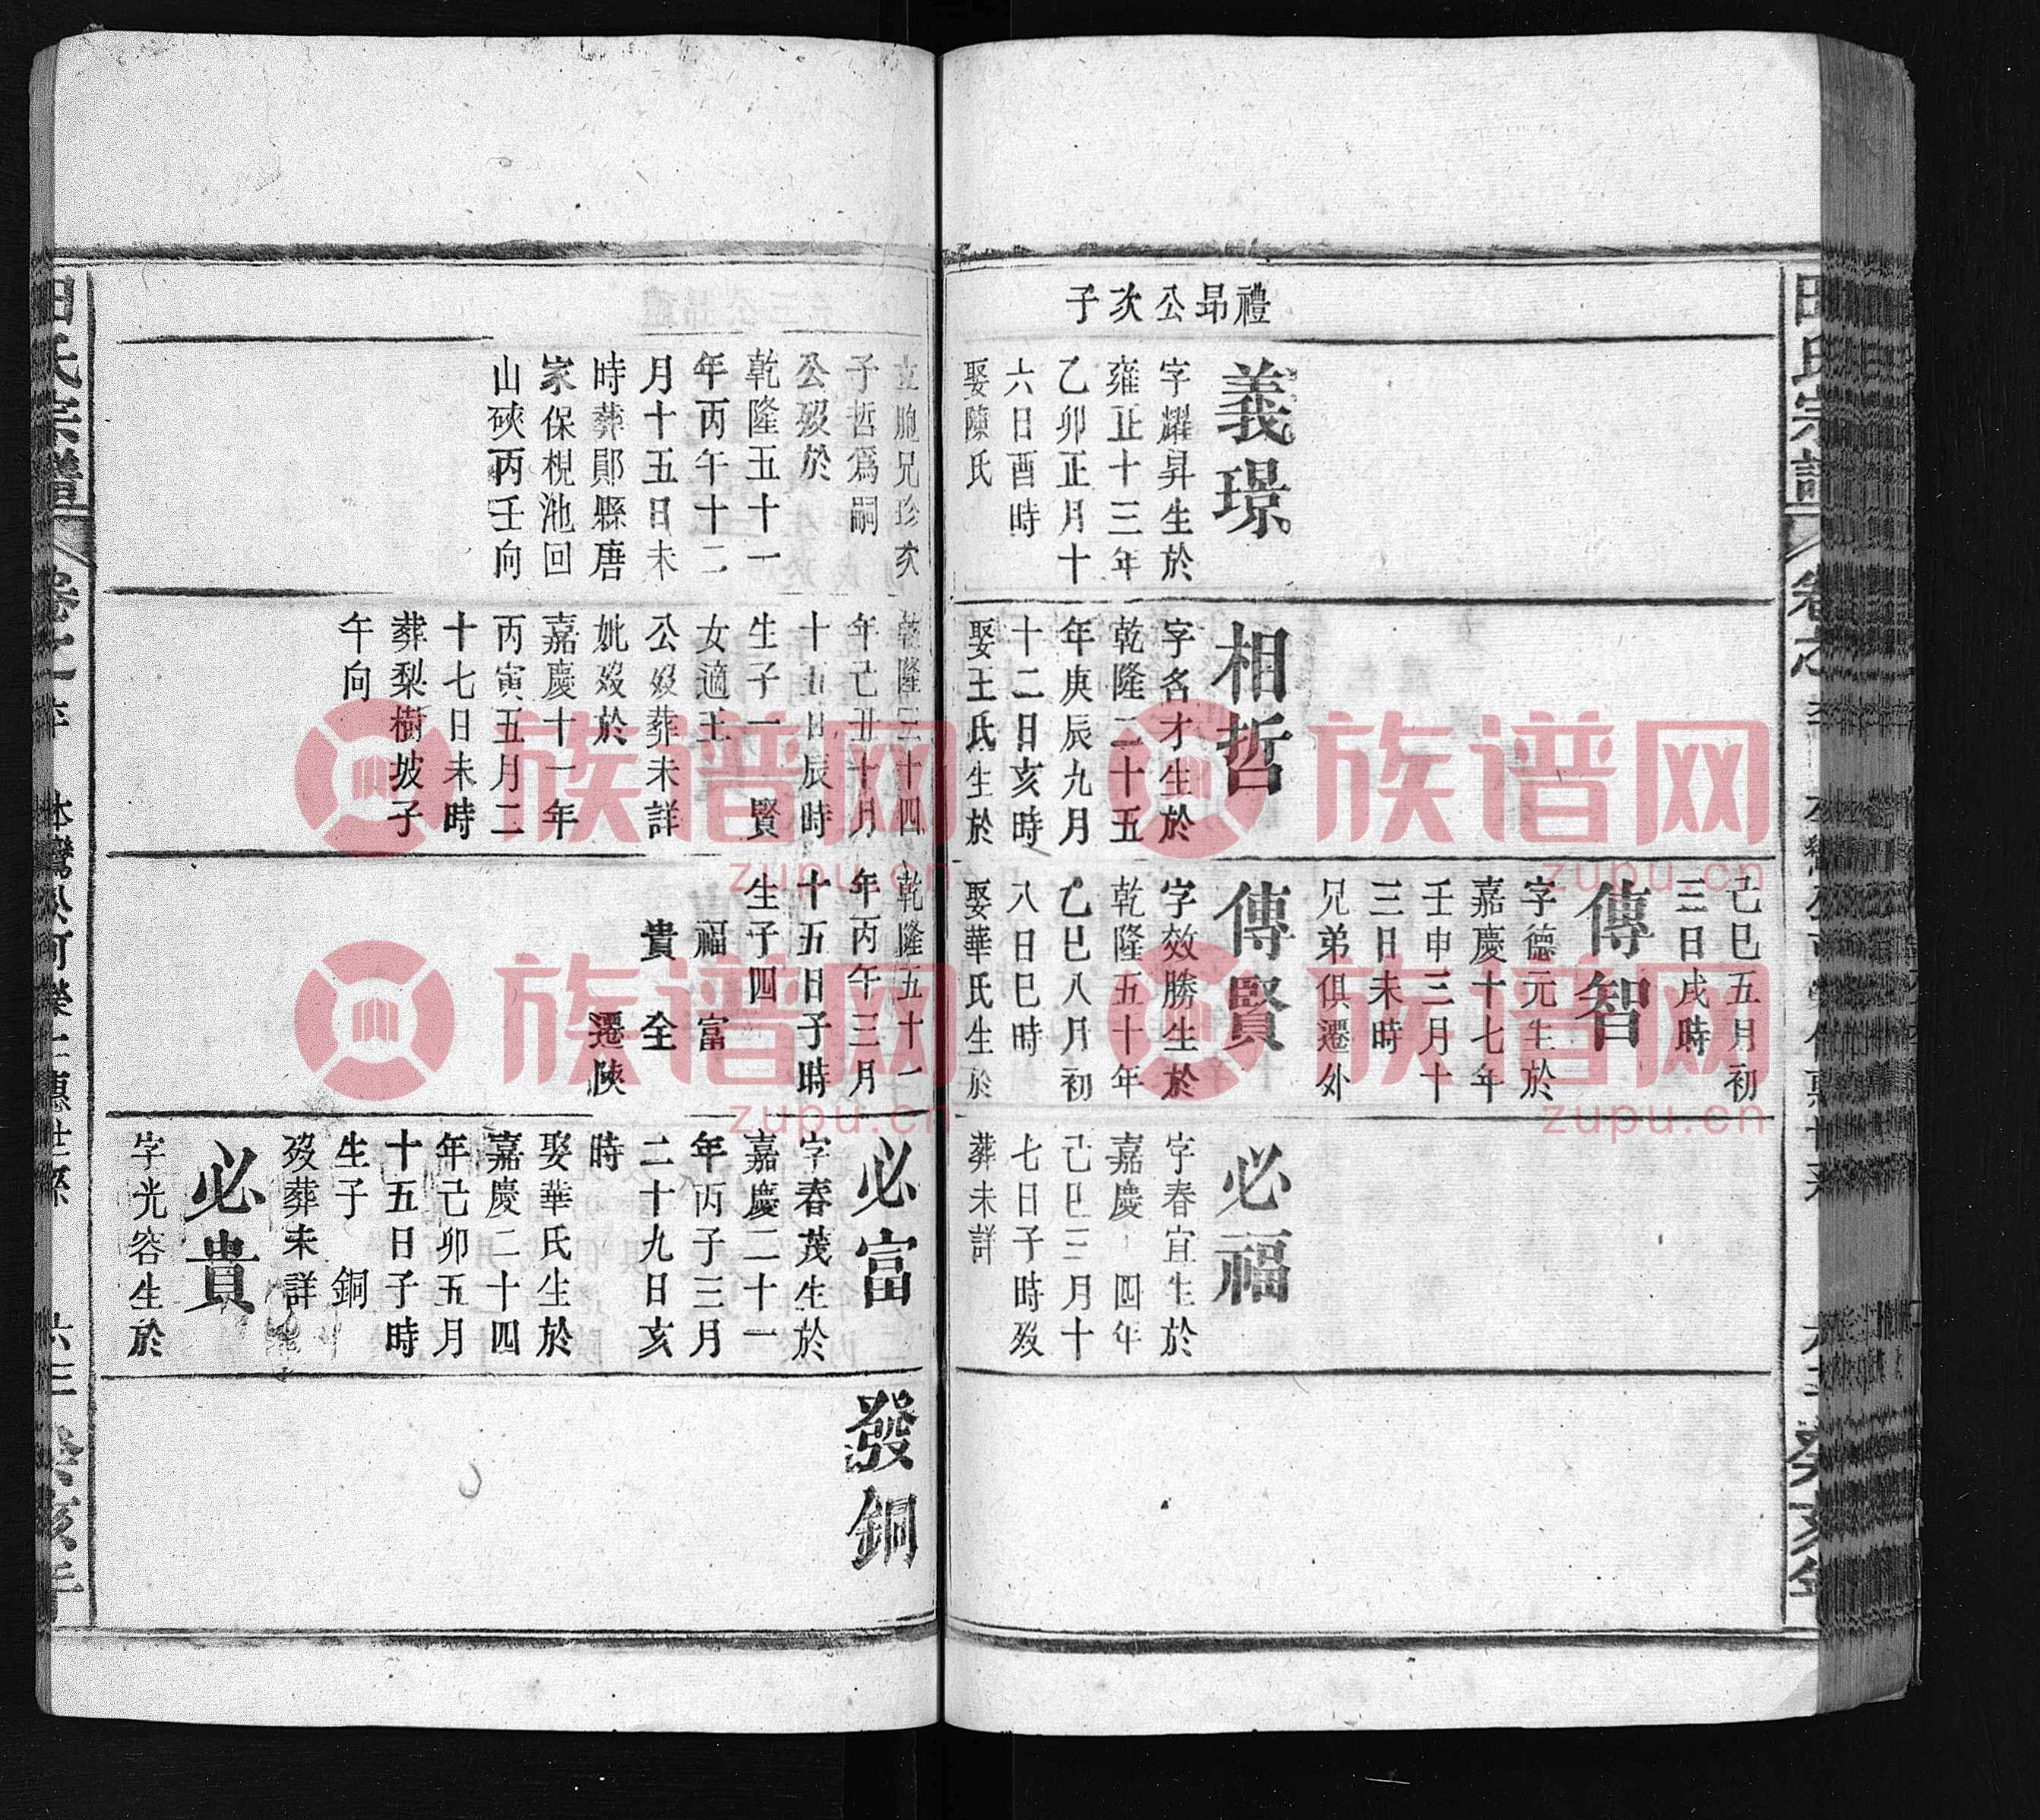 禮昂公次子
義璟
字耀昇生於
雍正十三年
乙卯正月十
六日酉時
娶陳氏
相哲
字名才生於
乾隆二十五
年庚辰九月
十二日亥時
娶王氏生於
己巳五月初
三日戌時
傳智
字德元生於
嘉慶十七年
壬申三月十
三日未時
兄弟俱遷外
傳賢
字效勝生於
乾隆五十年
乙巳八月初
八日巳時
娶華氏生於
必福
字春宜生於
嘉慶十四年
己巳三月十
七日子時歿
葬未詳
立胞兄珍次
子哲爲嗣
公歿於
乾隆五十一
年丙午十二
月十五日未
時葬鄖縣唐
家保梘池回
山硤丙壬向
乾隆三十四
年己丑十月
十五日辰時
生子一 賢
女適王
公歿葬未詳
妣歿於
嘉慶十一年
丙寅五月二
十七日未時
葬梨樹坡子
午向
乾隆五十一
年丙午三月
十五日子時
生子四
福 富
貴 全
遷陝
必富
字春茂生於
嘉慶二十一
年丙子三月
二十九日亥
時
娶華氏生於
嘉慶二十四
年己卯五月
十五日子時
生子 銅
歿葬未詳
必貴
字光容生於
發銅
田氏宗譜
六三
癸亥年
族谱网
zupu.cn
族谱网
zupu.cn
族谱网
zupu.cn
族谱网
zupu.cn